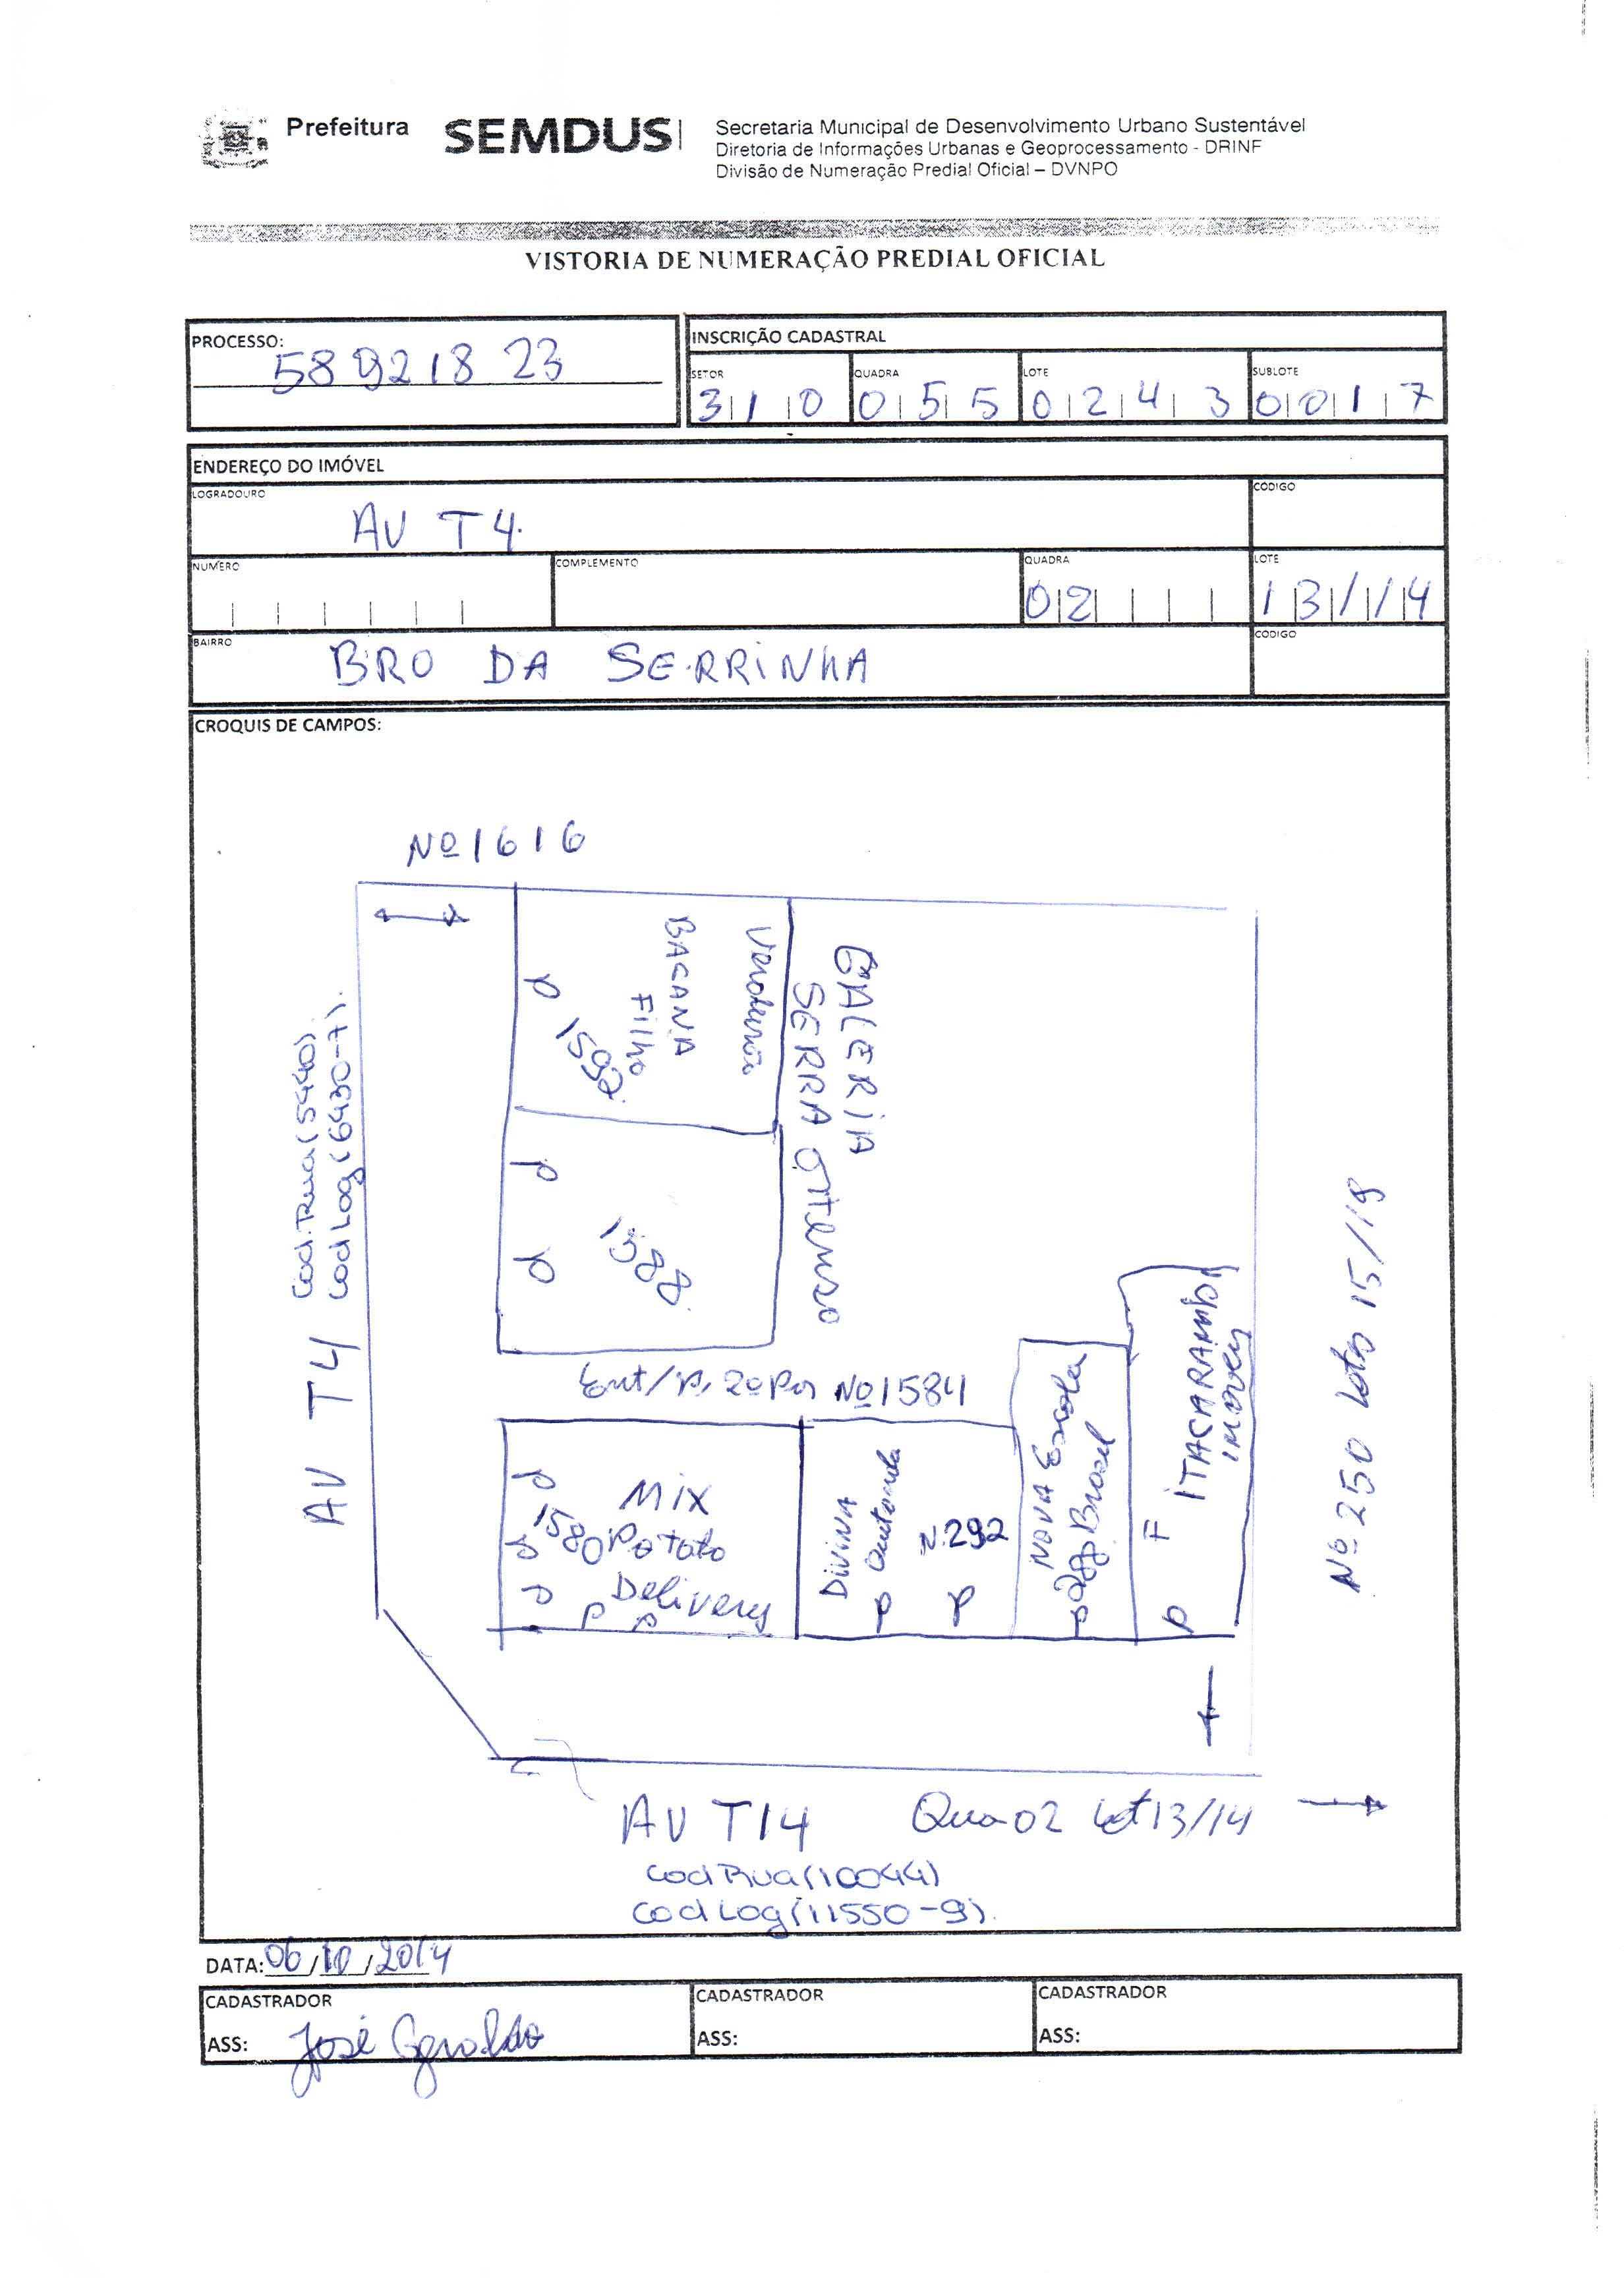 Prefeitura
SEMDUS
Secretaria Municipal de Desenvolvimento Urbano Sustentável
Diretoria de Informações Urbanas e Geoprocessamento - DRINF
Divisão de Numeração Predial Oficial – DVNPO
VISTORIA DE NUMERAÇÃO PREDIAL OFICIAL
PROCESSO:
58921823
INSCRIÇÃO CADASTRAL
SETOR
310
QUADRA
055
LOTE
0243
SUBLOTE
0017
ENDEREÇO DO IMÓVEL
LOGRADOURO
AV T4
CODIGO
NUMERO
COMPLEMENTO
QUADRA
02
LOTE
13/14
BAIRRO
BRO DA SERRINHA
CODIGO
CROQUIS DE CAMPOS:
Nº 1616
BACANA
Filho
1592
GALERIA
SERRA
Cod. Rua (5440)
Cod Log (6430-7).
AV T4
1588
Ent/p, Nº 1584
Mix
Potato
Delivery
1580
DIVINA
292
NOVA Escola
Brasil
ITACARAMBY
IMOVEIS
F
Nº 250 lote 15/19
AV T14
Qua 02 lot 13/14
Cod Rua (10044)
Cod Log (11550-9).
DATA: 06/10/2014
CADASTRADOR
ASS: José Geraldo
CADASTRADOR
ASS:
CADASTRADOR
ASS: